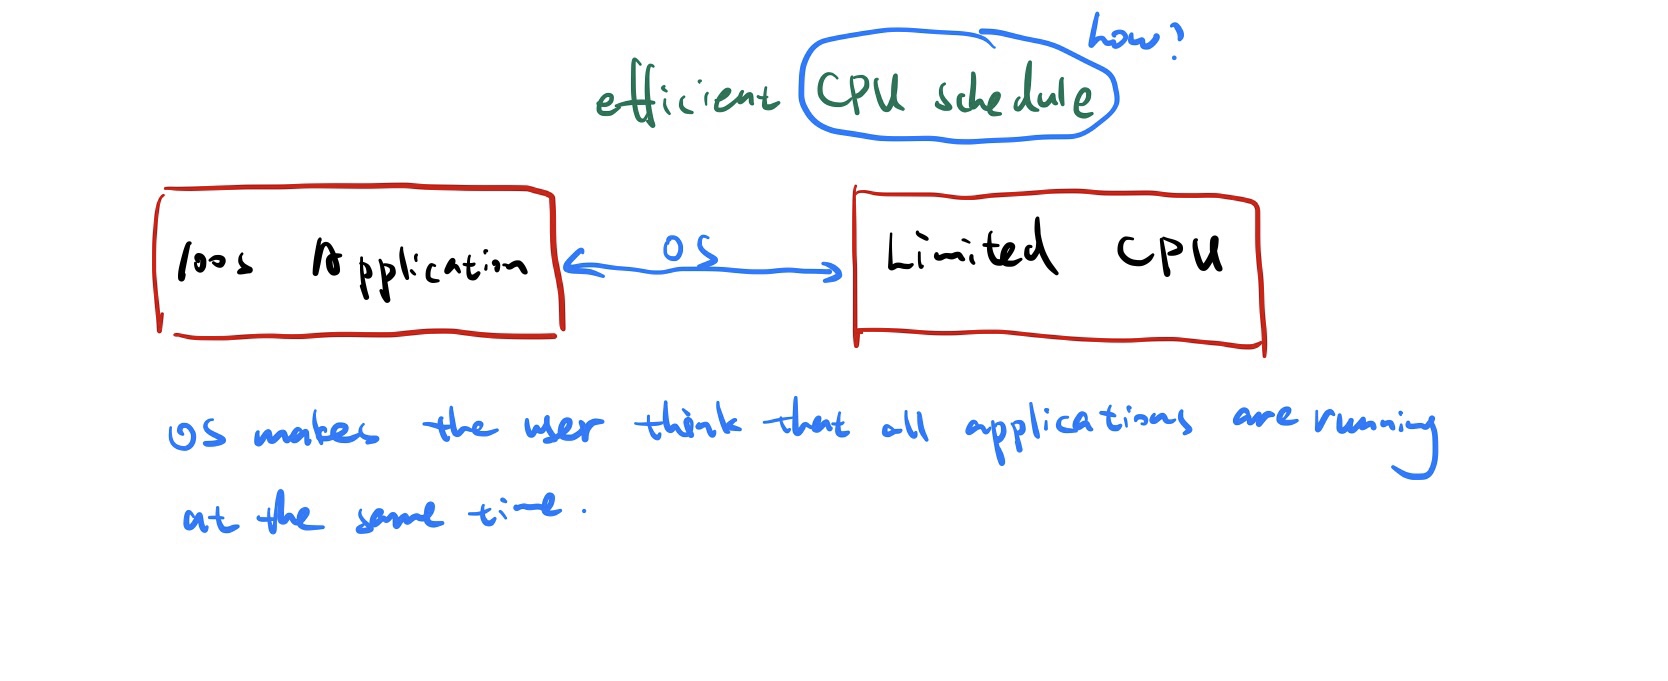 how?
efficient CPU schedule
100s Application
OS
Limited CPU
OS makes the user think that all applications are running
at the same time.